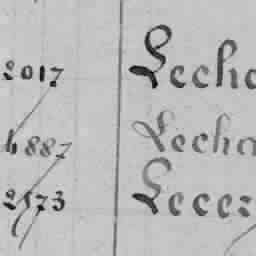 2017 Lecha
4887 Lecha
2573 Lecer